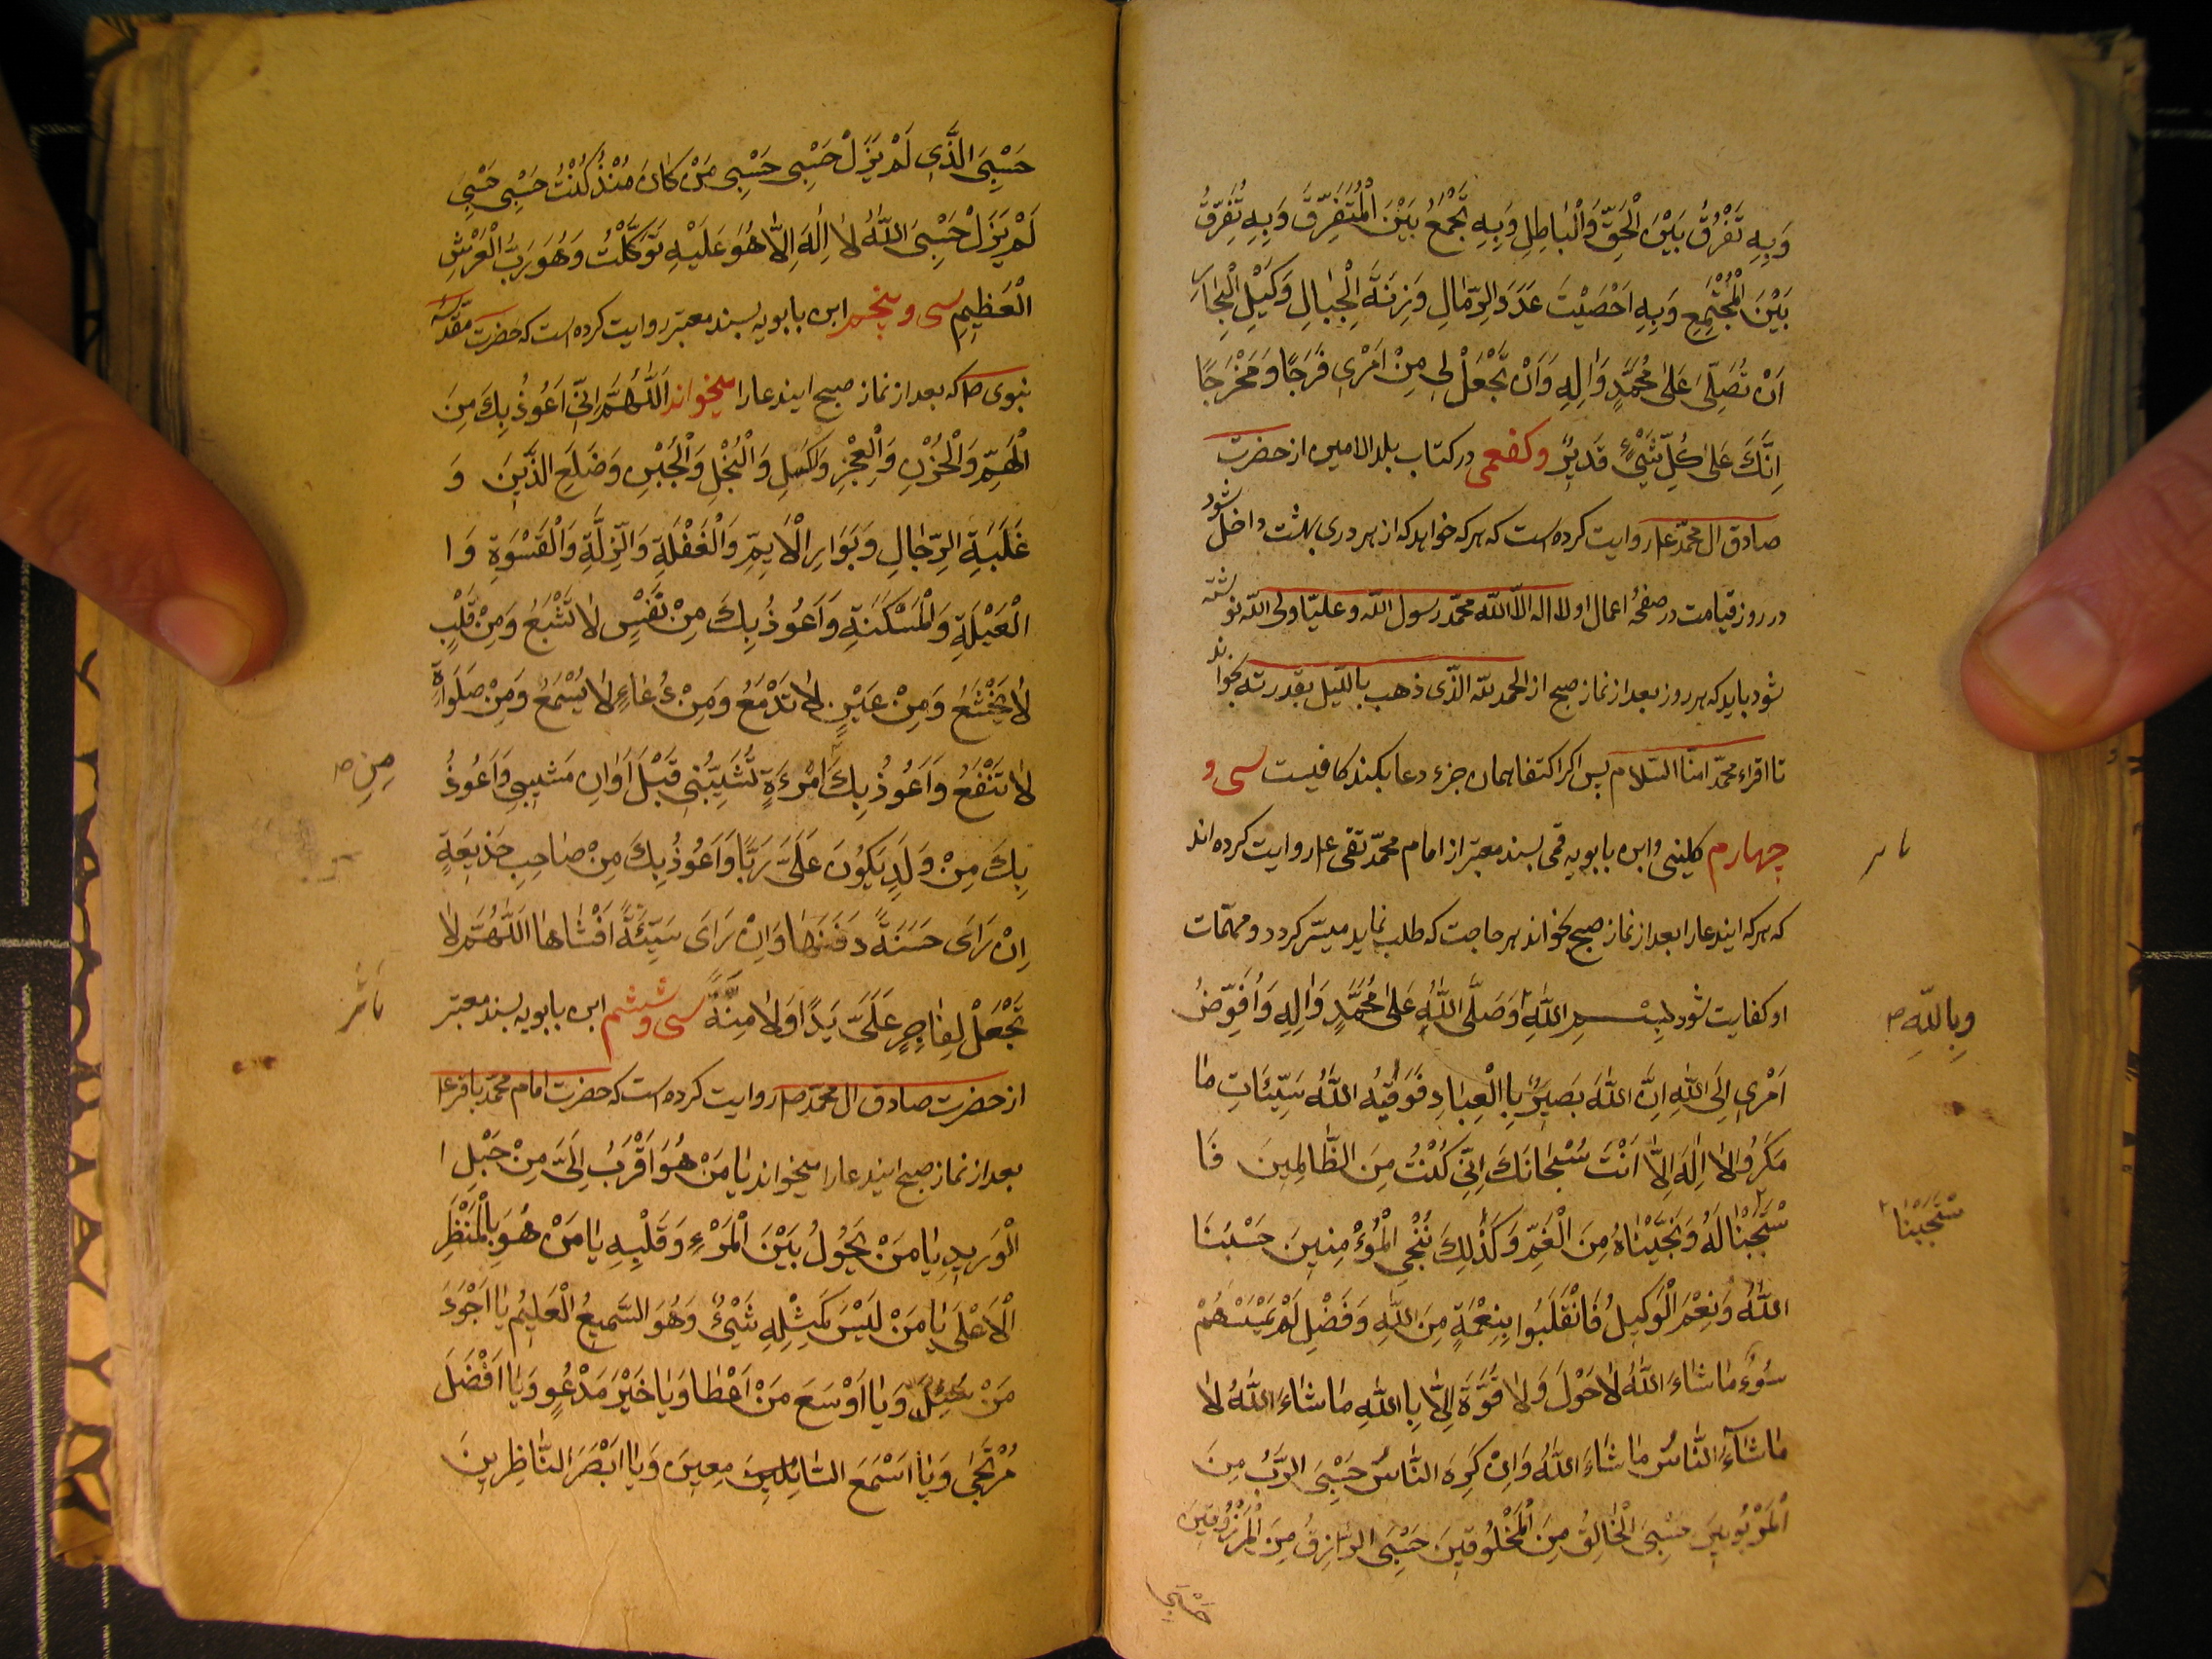 وَبِهِ تَفْرُقُ بَيْنَ الْحَقِّ وَالْبَاطِلِ وَبِهِ تَجْمَعُ بَيْنَ الْمُتَفَرِّقَ وَبِهِ تُفَرِّقُ
بَيْنَ الْمُجْتَمِعِ وَبِهِ اَحْصَيْتَ عَدَدَ الرِّمَالِ وَزِنَةَ الْجِبَالِ وَكَيْلَ الْبِحَارِ
اَنْ تُصَلِّىَ عَلىٰ مُحَمَّدٍ وَاٰلِهِ وَاَنْ تَجْعَلْ لِى مِنْ اَمْرِى فَرَجًا وَمَخْرَجًا
اِنَّكَ عَلىٰ كُلِّ شَىْءٍ قَدِيْرٌ وكفعمى در كتاب بلد الامين از حضرت
صادق ال محمّد ع روايت كرده است كه هركه خواهد كه از هر درى بهشت داخل شود
در روز قيامت در صفحهٔ اعمال او لا اله الّا اللّه محمّد رسول اللّه و عليّا ولى اللّه نوشته
شود بايد كه هر روز بعد از نماز صبح از الحمد للّه الّذى ذهب بالليل بقدرته بخواند
تا اقراء محمّد امنّا السّلام پس اگر اكتفا بهمان جزء دعا بكند كافيست سى و
چهارم كلينى و ابن بابويه قمى بسند معتبر از امام محمّد تقى ع روايت كرده اند
كه هركه ايندعا را بعد از نماز صبح بخواند هر حاجت كه طلب نمايد ميسّر گردد و مهمّات
او كفايت شود بِسْمِ اللّٰهِ وَصَلَّى اللّٰهُ عَلىٰ مُحَمَّدٍ وَاٰلِهِ وَاُفَوِّضُ
وَبِاللّٰهِ
اَمْرِى اِلَى اللّٰهِ اِنَّ اللّٰهَ بَصِيرٌ بِالْعِبَادِ فَوَقٰيهُ اللّٰهُ سَيِّئَاتِ مَا
مَكَرُوا لَا اِلٰهَ اِلَّا اَنْتَ سُبْحَانَكَ اِنّى كُنْتُ مِنَ الظَّالِمِينَ فَا
سْتَجَبْنَا لَهُ وَنَجَّيْنَاهُ مِنَ الْغَمِّ وَكَذٰلِكَ نُنْجِى الْمُؤْمِنِينَ حَسْبُنَا
سْتَجَبْنَا
اللّٰهُ وَنِعْمَ الْوَكِيلُ فَانْقَلَبُوا بِنِعْمَةٍ مِنَ اللّٰهِ وَفَضْلٍ لَمْ يَمْسَسْهُمْ
سُوءٌ مَا شَاءَ اللّٰهُ لَا حَوْلَ وَلَا قُوَّةَ اِلَّا بِاللّٰهِ مَا شَاءَ اللّٰهُ لَا
مَا شَآءَ النَّاسُ مَا شَاءَ اللّٰهُ وَاِنْ كَرِهَ النَّاسُ حَسْبِىَ الرَّبُّ مِنَ
الْمَرْبُوبِينَ حَسْبِىَ الْخَالِقُ مِنَ الْمَخْلُوقِينَ حَسْبِىَ الرَّازِقُ مِنَ الْمَرْزُوقِينَ
حَسْبِىَ الَّذِى لَمْ يَزَلْ حَسْبِى حَسْبِى مَنْ كَانَ مُنْذُ كُنْتُ حَسْبِى حَسْبِىَ
لَمْ يَزَلْ حَسْبِىَ اللّٰهُ لَا اِلٰهَ اِلَّا هُوَ عَلَيْهِ تَوَكَّلْتُ وَهُوَ رَبُّ الْعَرْشِ
الْعَظِيمِ سى و پنجم ابن بابويه بسند معتبر روايت كرده است كه حضرت مقدّسه
نبوى ص كه بعد از نماز صبح ايندعا را ميخواند اَللّٰهُمَّ اِنّى اَعُوذُ بِكَ مِنَ
الْهَمِّ وَالْحُزْنِ وَالْعَجْزِ وَالْكَسَلِ وَالْبُخْلِ وَالْجُبْنِ وَضَلَعِ الدَّيْنِ وَ
غَلَبَةِ الرِّجَالِ وَبَوَارِ الْاَيِّمِ وَالْغَفْلَةِ وَالزِّلَّةِ وَالْقَسْوَةِ وَا
الْعَيْلَةِ وَالْمَسْكَنَةِ وَاَعُوذُ بِكَ مِنْ نَفْسٍ لَا تَشْبَعُ وَمِنْ قَلْبٍ
لَا يَخْشَعُ وَمِنْ عَيْنٍ لَا تَدْمَعُ وَمِنْ دُعَاءٍ لَا يُسْمَعُ وَمِنْ صَلَوٰةٍ
لَا تَنْفَعُ وَاَعُوذُ بِكَ امْرَءَةٍ تُشَيِّبُنِى قَبْلَ اَوَانِ مَشِيبِى وَاَعُوذُ
مِنِ ص
بِكَ مِنْ وَلَدٍ يَكُونَ عَلَىَّ رَبًّا وَاَعُوذُ بِكَ مِنْ صَاحِبِ خَدِيعَةٍ
اِنْ رَاَى حَسَنَةً دَفَنَهَا وَاِنْ رَاَى سَيِّئَةً اَفْشَاهَا اَللّٰهُمَّ لَا
تَجْعَلْ لِفَاجِرٍ عَلَىَّ يَدًا وَلَا مِنَّةً سى و ششم ابن بابويه بسند معتبر
از حضرت صادق ال محمّد ص روايت كرده است كه حضرت امام محمّد باقر ع
بعد از نماز صبح ايندعا را ميخواند يَا مَنْ هُوَ اَقْرَبُ اِلَىَّ مِنْ حَبْلِ ا
الْوَرِيدِ يَا مَنْ يَحُولُ بَيْنَ الْمَرْءِ وَقَلْبِهِ يَا مَنْ هُوَ بِالْمَنْظَرِ
الْاَعْلَى يَا مَنْ لَيْسَ كَمِثْلِهِ شَىْءٌ وَهُوَ السَّمِيعُ الْعَلِيمُ يَا اَجْوَدَ
مَنْ سُئِلَ وَيَا اَوْسَعَ مَنْ اَعْطَا وَيَا خَيْرَ مَدْعُوٍ وَيَا اَفْضَلَ
مُرْتَجَى وَيَا اَسْمَعَ السَّائِلِينَ مِعِينَ وَيَا اَبْصَرَ النَّاظِرِينَ